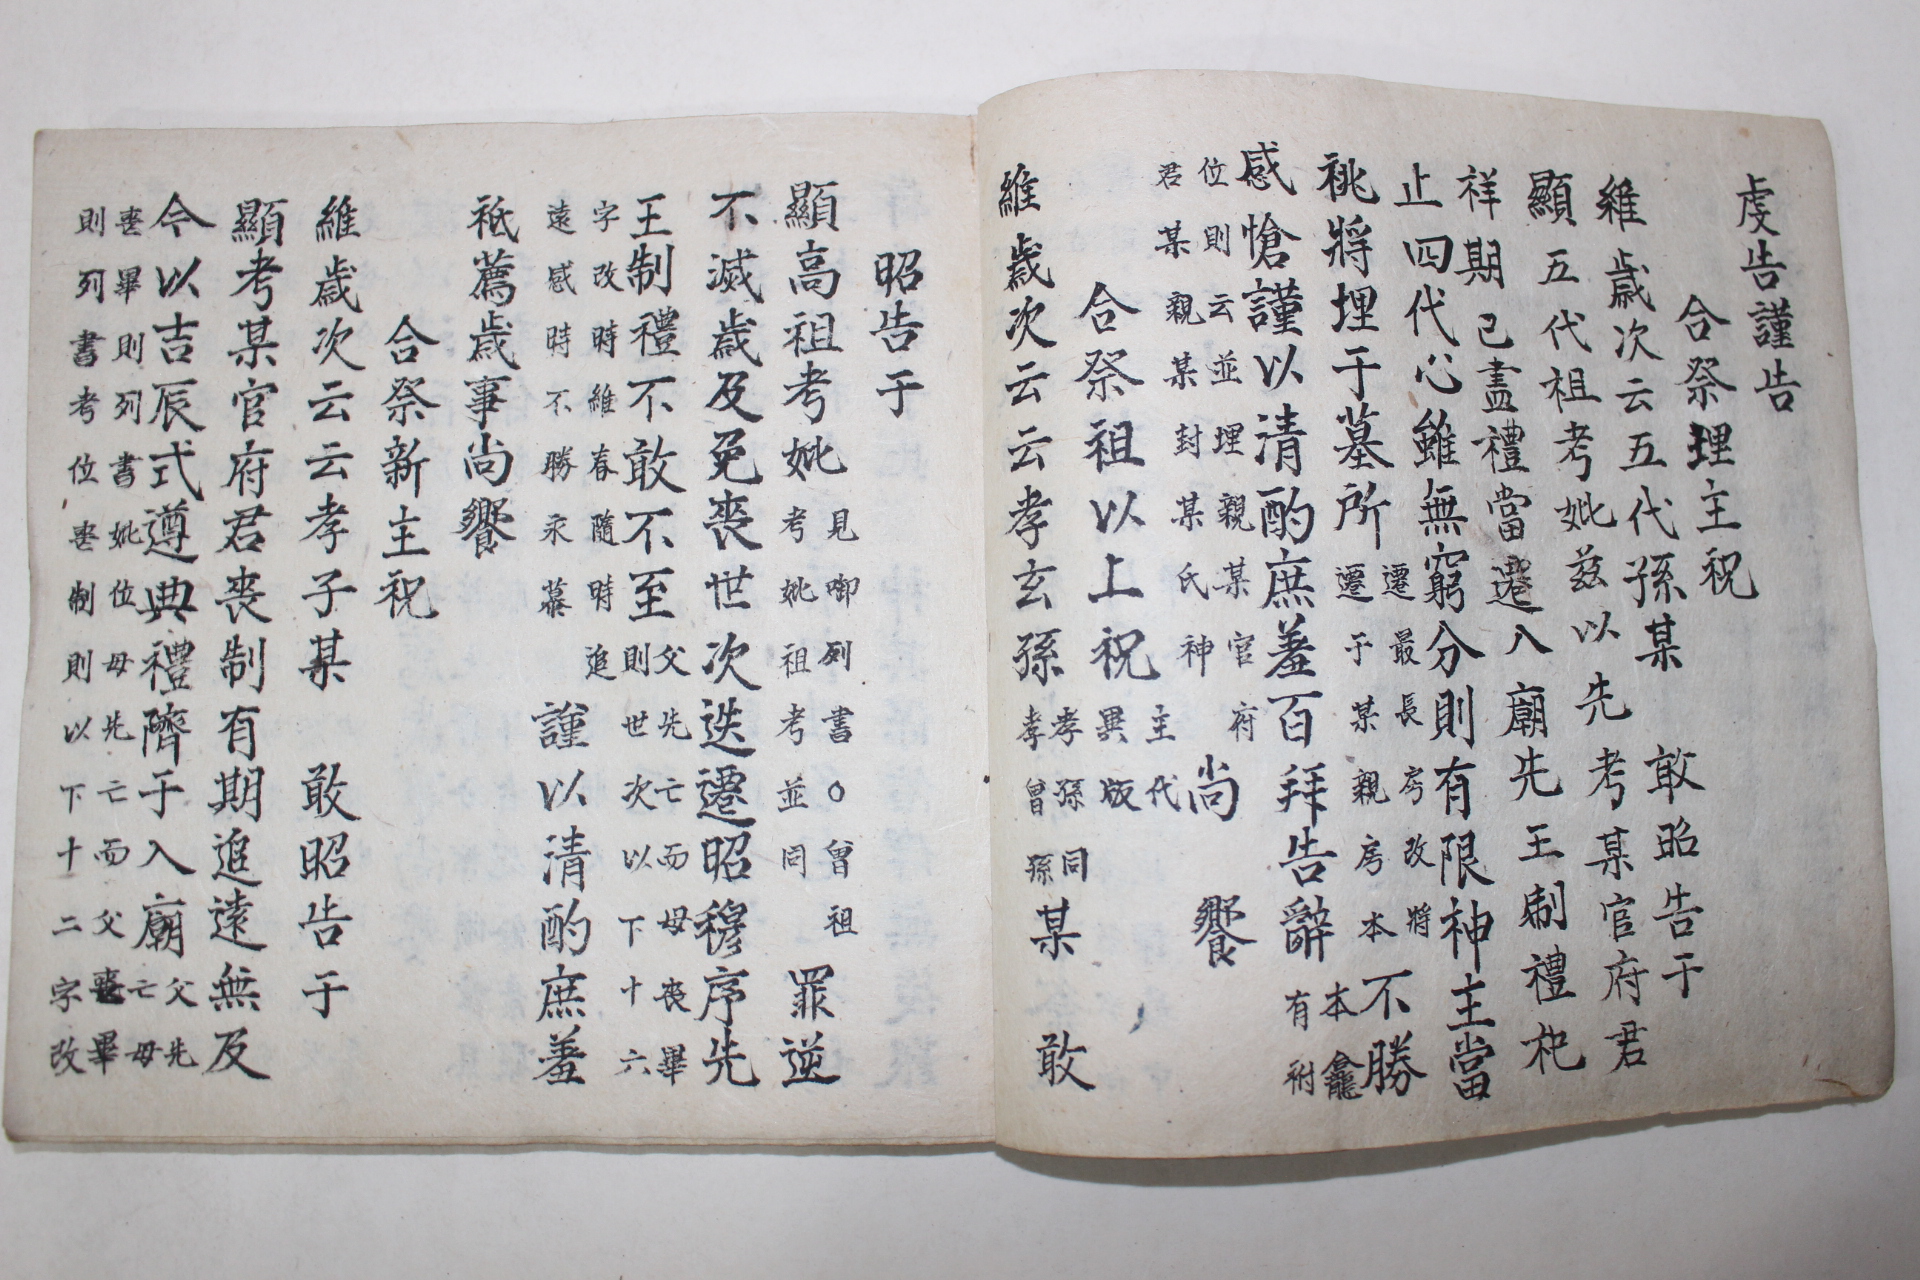 虔告謹告
合祭埋主祝
維歲次云五代孫某 敢昭告于
顯五代祖考妣兹以先考某官府君
祥期已盡禮當遷入廟先王制禮祀
止四代心雖無窮分則有限神主當
祧將埋于墓所
遷最長房改將
遷于某親房本
不勝
本龕
有祔
感愴謹以清酌庶羞百拜告辭
位則云並埋親某官府
君某親某封某氏神
尚
饗
合祭祖以上祝
主代
異版
維歲次云云孝玄孫
孝孫同
孝曾孫
某 敢
昭告于
顯高祖考妣
見啣列書○曾祖
考妣祖考並同
罪逆
不滅歲及免喪世次迭遷昭穆序先
王制禮不敢不至
父先亡而母喪畢
則世次以下十六
字改時維春隨時追
遠感時不勝永慕
謹以清酌庶羞
祗薦歲事尚饗
合祭新主祝
維歲次云云孝子某 敢昭告于
顯考某官府君喪制有期追遠無及
今以吉辰式遵典禮隮于入廟
父先
亡母
喪畢則列書妣位母先亡而父喪畢
則列書考位喪制則以下十二字改